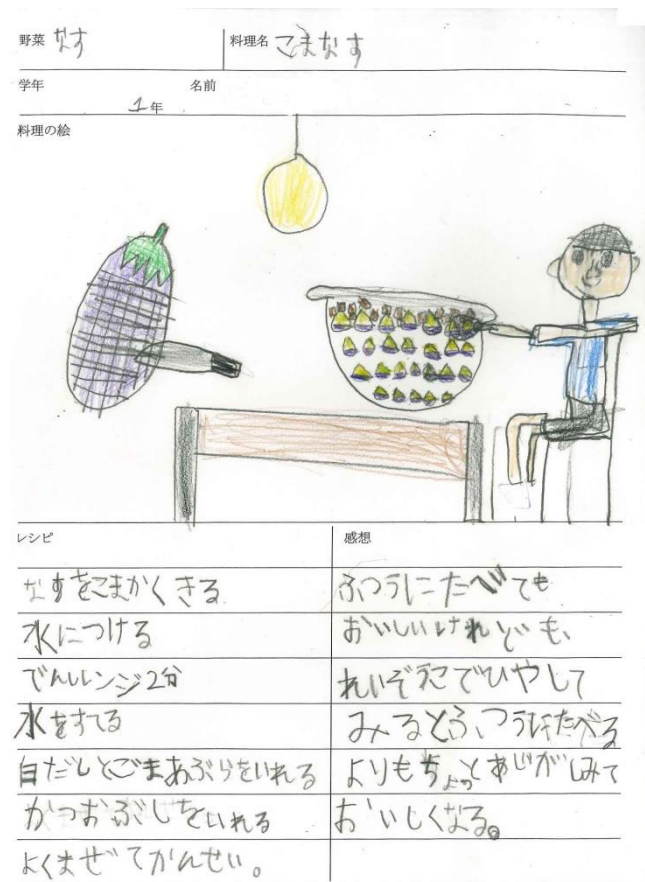 野菜 なす
料理名 こまなす
学年 1年
名前
料理の絵
レシピ
なすをこまかくきる
水につける
でんしレンジ2分
水をすてる
白だしとごまあぶらをいれる
かつおぶしをいれる
よくまぜてかんせい。
感想
ふつうにたべても
おいしいけれども、
れいぞうこでひやして
みるとふつうにたべる
よりもちょっとあじがしみて
おいしくなる。